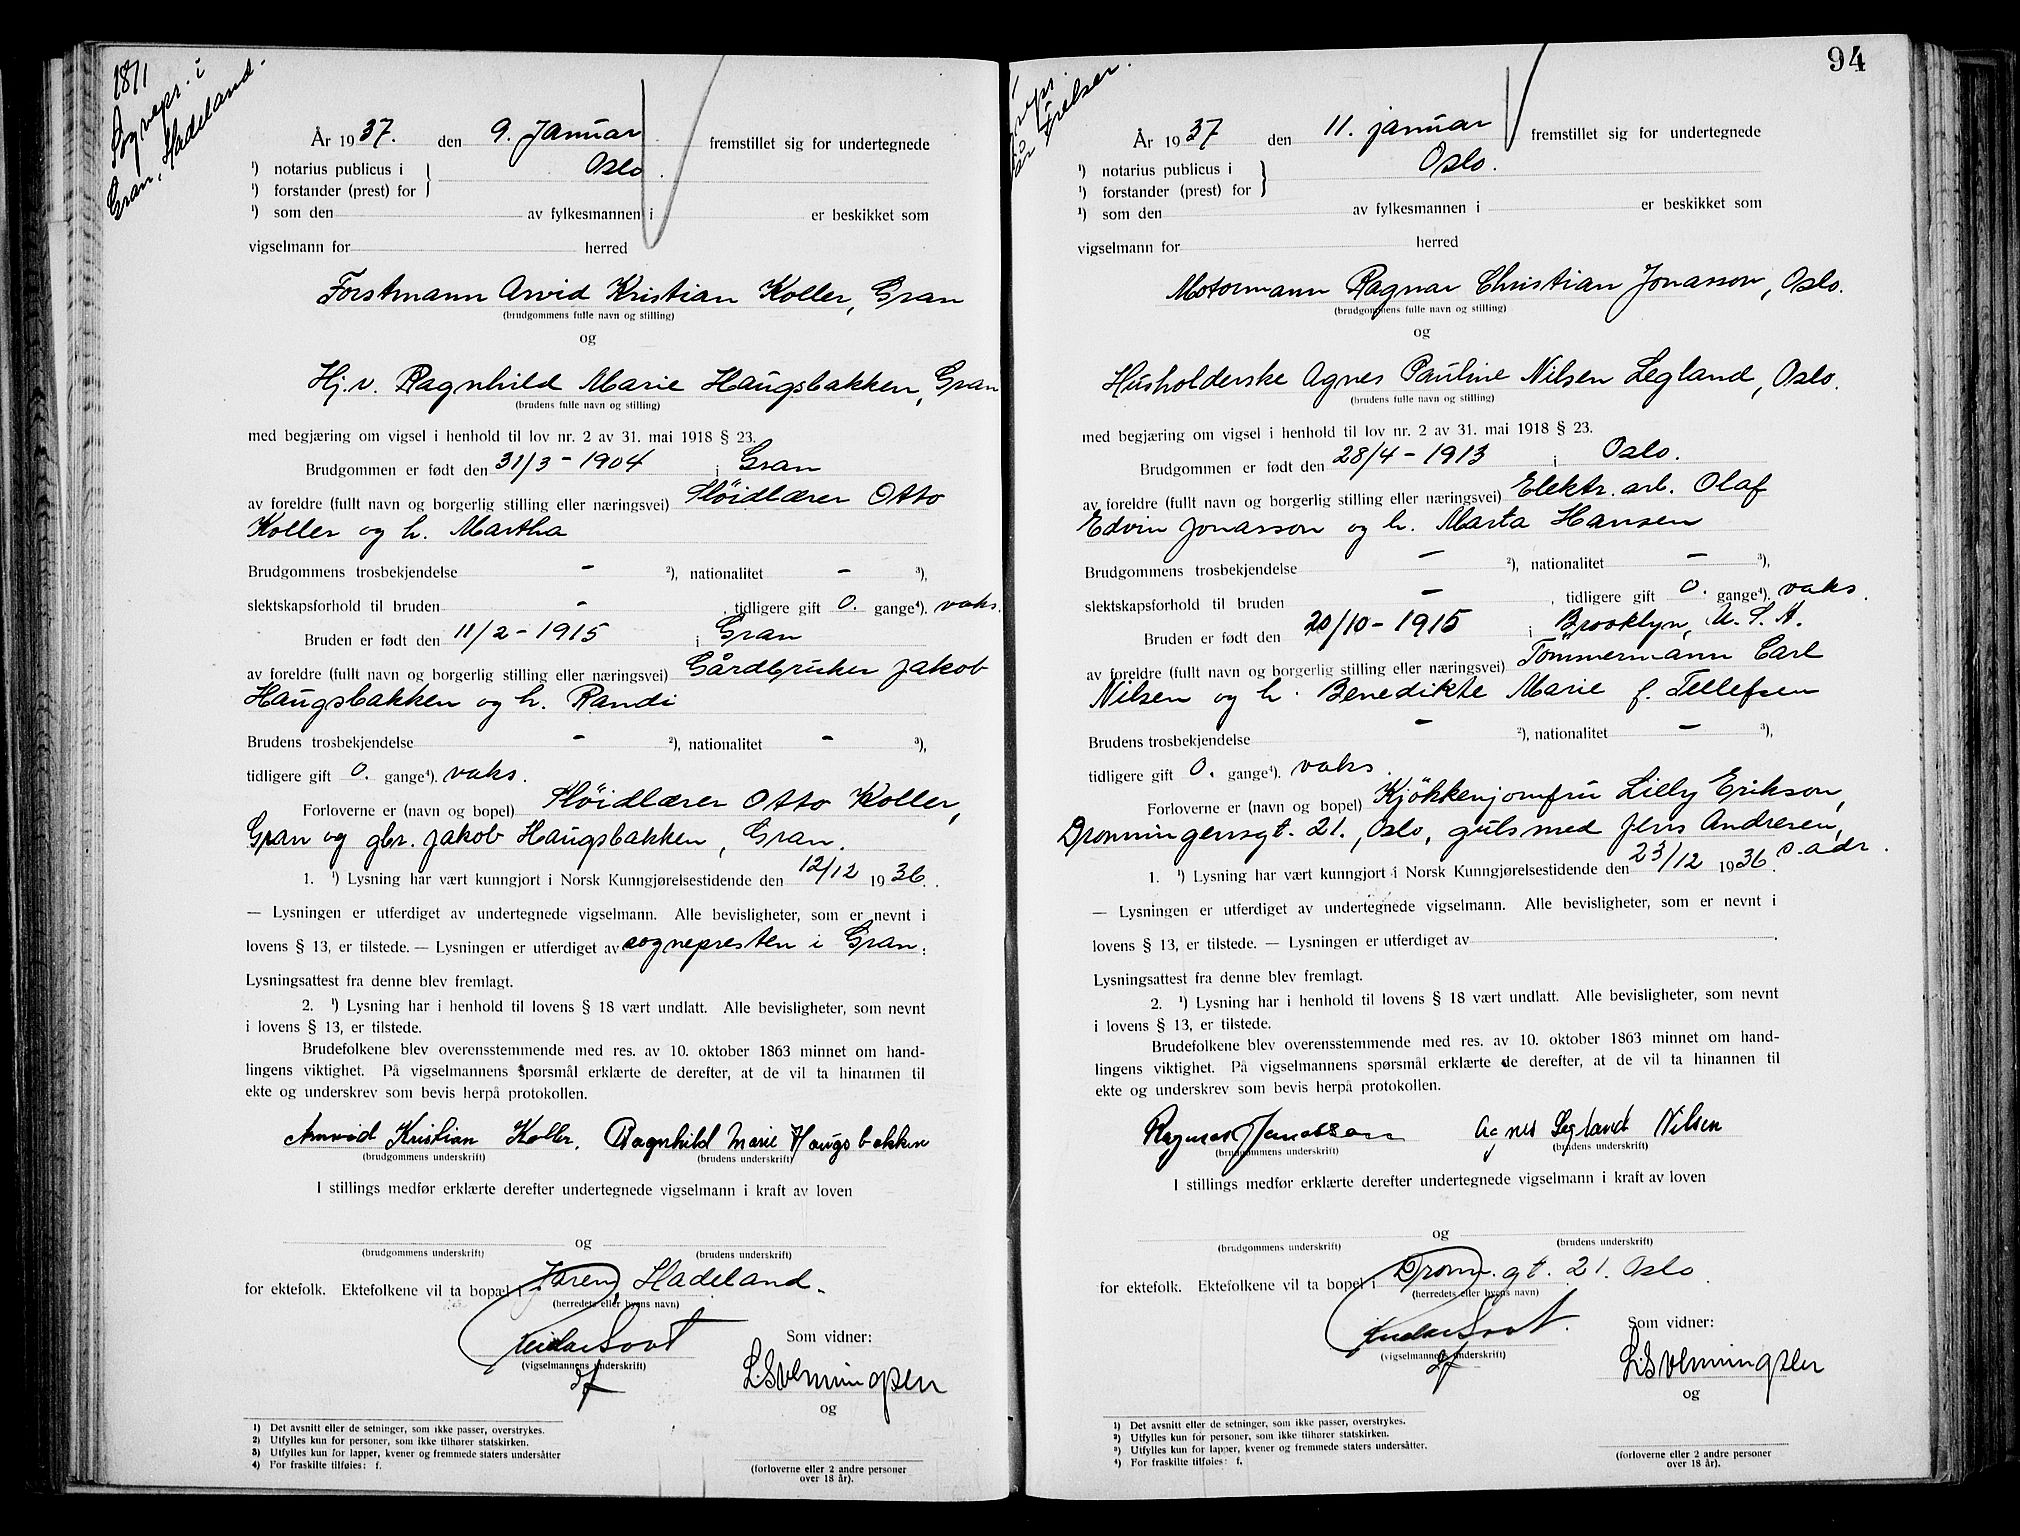 18/1
Sognepr. i
Gran, Hadeland.
År 1937. den 9. Januar fremstillet sig for undertegnede
¹) notarius publicus i Oslo.
¹) forstander (prest) for
¹) som den av fylkesmannen i er beskikket som
vigselmann for herred
Forstmann Arvid Kristian Koller, Gran
(brudgommens fulle navn og stilling)
og
Hj.v. Ragnhild Marie Haugsbakken, Gran
(brudens fulle navn og stilling)
med begjæring om vigsel i henhold til lov nr. 2 av 31. mai 1918 § 23.
Brudgommen er født den 31/3 - 1904 i Gran
av foreldre (fullt navn og borgerlig stilling eller næringsvei) Slöidlærer Otto
Koller og h. Martha
Brudgommens trosbekjendelse - ²), nationalitet - ³),
slektskapsforhold til bruden - , tidligere gift 0. gange⁴). vaks.
Bruden er født den 11/2 - 1915 i Gran
av foreldre (fullt navn og borgerlig stilling eller næringsvei) Gårdbruker Jakob
Haugsbakken og h. Randi
Brudens trosbekjendelse - ²), nationalitet - ³),
tidligere gift 0. gange⁴). vaks.
Forloverne er (navn og bopel) Slöidlærer Otto Koller,
Gran og gbr. Jakob Haugsbakken, Gran.
1. ¹) Lysning har vært kunngjort i Norsk Kunngjørelsestidende den 12/12 1936.
— Lysningen er utferdiget av undertegnede vigselmann. Alle bevisligheter, som er nevnt i
lovens § 13, er tilstede. — Lysningen er utferdiget av sognepresten i Gran.
Lysningsattest fra denne blev fremlagt.
2. ¹) Lysning har i henhold til lovens § 18 vært undlatt. Alle bevisligheter, som nevnt
i lovens § 13, er tilstede.
Brudefolkene blev overensstemmende med res. av 10. oktober 1863 minnet om hand-
lingens viktighet. På vigselmannens spørsmål erklærte de derefter, at de vil ta hinannen til
ekte og underskrev som bevis herpå protokollen.
Arnvid Kristian Koller. Ragnhild Marie Haugsbakken
(brudgommens underskrift) (brudens underskrift)
I stillings medfør erklærte derefter undertegnede vigselmann i kraft av loven
og
(brudgommens underskrift) (brudens underskrift)
for ektefolk. Ektefolkene vil ta bopæl i Jaren, Hadeland.
(herredets eller byens navn)
Som vidner:
(vigselmannens underskrift)
L. Svenningsen
og
(forloverne eller 2 andre personer
over 18 år).
1) Det avsnitt eller de setninger, som ikke passer, overstrykes.
2) Utfylles kun for personer, som ikke tilhører statskirken.
3) Utfylles kun for lapper, kvener og fremmede staters undersåtter
4) For fraskilte tilføies: f.
94
År 1937 den 11. januar fremstillet sig for undertegnede
¹) notarius publicus i Oslo.
¹) forstander (prest) for
¹) som den av fylkesmannen i er beskikket som
vigselmann for herred
Motormann Ragnar Christian Jonasson, Oslo.
(brudgommens fulle navn og stilling)
og
Husholderske Agnes Pauline Nilsen Legland, Oslo.
(brudens fulle navn og stilling)
med begjæring om vigsel i henhold til lov nr. 2 av 31. mai 1918 § 23.
Brudgommen er født den 28/4 - 1913 i Oslo.
av foreldre (fullt navn og borgerlig stilling eller næringsvei) Elektr. arb. Olaf
Edvin Jonasson og h. Marta Hansen
Brudgommens trosbekjendelse - ²), nationalitet - ³),
slektskapsforhold til bruden - , tidligere gift 0. gange⁴). vaks.
Bruden er født den 20/10 - 1915 i Brooklyn, U.S.A.
av foreldre (fullt navn og borgerlig stilling eller næringsvei) Tömmermann Carl
Nilsen og h. Benedikte Marie f. Tellefsen
Brudens trosbekjendelse - ²), nationalitet - ³),
tidligere gift 0. gange⁴). vaks.
Forloverne er (navn og bopel) Kjökkenjomfru Lilly Erikson,
Dronningensgt. 21., Oslo, gulsmed Jens Andresen,
s. adr.
1. ¹) Lysning har vært kunngjort i Norsk Kunngjørelsestidende den 23/12 1936.
— Lysningen er utferdiget av undertegnede vigselmann. Alle bevisligheter, som er nevnt i
lovens § 13, er tilstede. — Lysningen er utferdiget av
Lysningsattest fra denne blev fremlagt.
2. ¹) Lysning har i henhold til lovens § 18 vært undlatt. Alle bevisligheter, som nevnt
i lovens § 13, er tilstede.
Brudefolkene blev overensstemmende med res. av 10. oktober 1863 minnet om hand-
lingens viktighet. På vigselmannens spørsmål erklærte de derefter, at de vil ta hinannen til
ekte og underskrev som bevis herpå protokollen.
Ragnar Jonasson Agnes Legland Nilsen
(brudgommens underskrift) (brudens underskrift)
I stillings medfør erklærte derefter undertegnede vigselmann i kraft av loven
og
(brudgommens underskrift) (brudens underskrift)
for ektefolk. Ektefolkene vil ta bopel i Dronn. gt. 21. Oslo.
(herredets eller byens navn)
Som vidner:
(vigselmannens underskrift)
L. Svenningsen
og
(forloverne eller 2 andre personer
over 18 år).
1) Det avsnitt eller de setninger, som ikke passer, overstrykes.
2) Utfylles kun for personer, som ikke tilhører statskirken.
3) Utfylles kun for lapper, kvener og fremmede staters undersåtter.
4) For fraskilte tilføies: f.